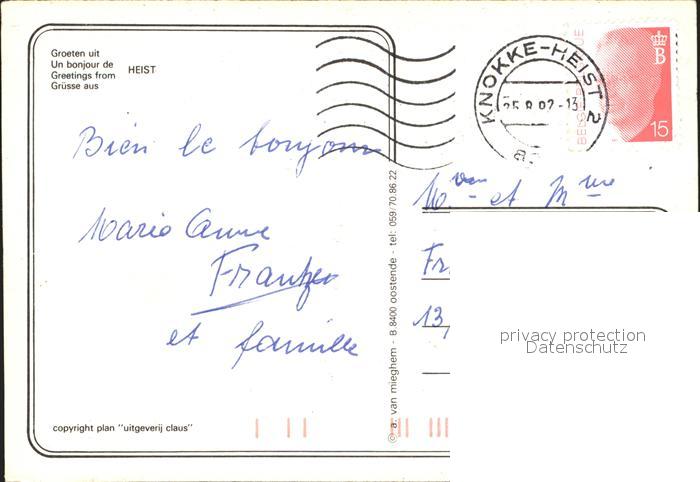 Groeten uit
Un bonjour de
Greetings from
Grüsse aus
HEIST
KNOKKE-HEIST 2
25.8.92-13
a
B
15
Bien le bonjour
Marie Anne
et famille
et Mme
13
privacy protection
Datenschutz
copyright plan "uitgeverij claus"
© a. van mieghem - B 8400 oostende - tel: 059/70.86.22